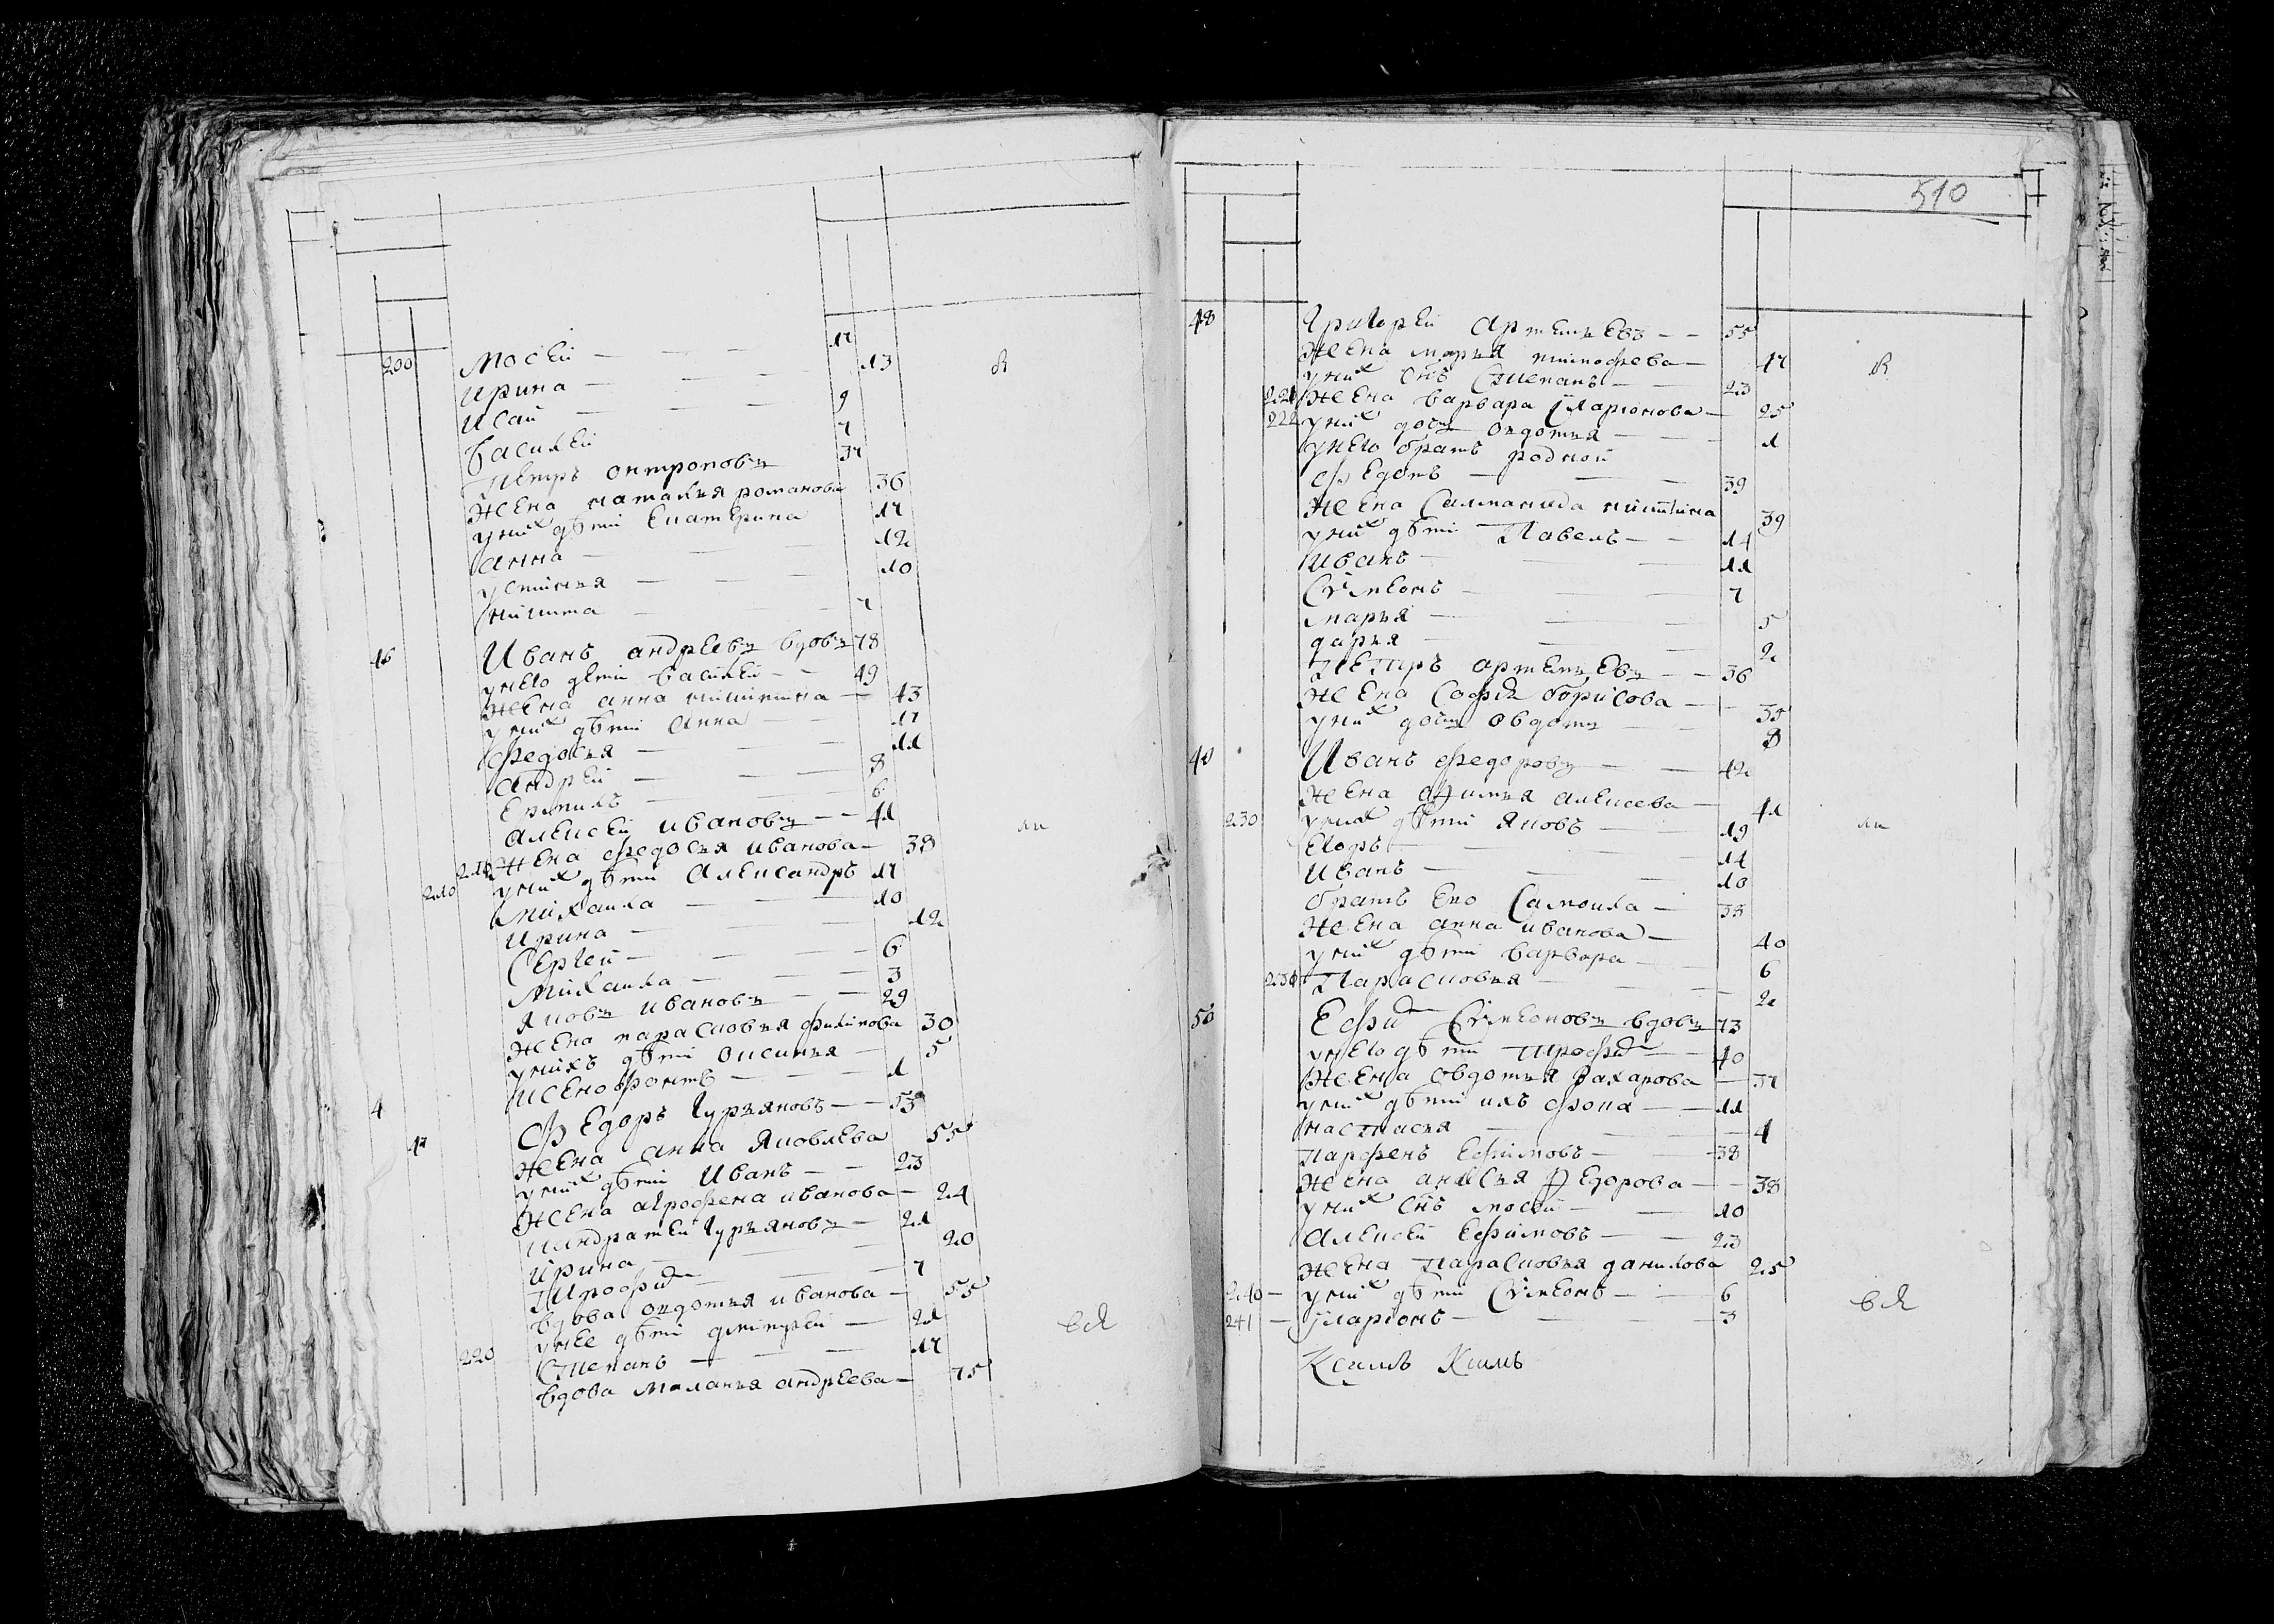 200 Мосей — — — 17
Ирина — — — 13
Исай — — — 9
Василей 7
Петръ онтроповъ 37
жена наталья романова 36
уних дѣти Екатерина 17
анна — — — 12
устинья — — — 10
никита — — 7
46 Иванъ андреевъ вдовъ 78
унего дети василей — — 49
жена анна никитина — 43
уних дѣти анна — — 17
федосья — — 11
андрей — — — 8
Ермилъ — — — 6
алексей ивановъ — — 41
жена федосья иванова — 38
210 уних дѣти александръ 17
михаила — — — 10
ирина — — — 12
Сергей — — — 6
михаила — — — 3
яковъ ивановъ — — 29
жена парасковья филипова 30
унихъ дѣти оксинья — 5
ксенофонтъ — — — 1
47 Федоръ гурьяновъ — — 53
жена анна яковлева 55
уних дѣти Иванъ — — 23
жена агрофена иванова — 24
кандратей гурьяновъ — 21
Ирина — — — 20
Трофим — — — 7
вдова овдотья иванова — 55
унее дѣти дмитрей — 21
220 Степанъ — — — 17
вдова маланья андреева — 75
510
48 григорей артемьевъ — — 55
жена марья тимофеева — 47
уних снъ Степанъ — — 23
221 жена варвара иларионова — 25
222 уних дочь овдотья — — — 1
унего братъ родной
федотъ — — — 39
жена Саламанида никитина 39
уних дѣти Павелъ — — 14
Иванъ — — — 11
Симеонъ — — — 7
марья — — — 5
дарья — — — 2
Петръ артемьевъ — — 36
жена Софья борисова — — 35
уних дочь овдотья — — 8
Иванъ федоровъ — — 42
жена афимья алексеева — 41
230 уних дѣти яковъ — — 19
Егоръ — — — 14
Иванъ — — — 10
братъ его Самоила — 38
жена анна иванова — 40
уних дѣти варвара — — 6
Парасковья — — — 2
50 Ефим Симеоновъ вдовъ 73
унего дѣти трофим — — 40
жена овдотья захарова — 37
уних дѣти ихъ фока — — 11
настасья — — — 4
парфенъ Ефимовъ — — 38
жена федорова — — 38
уних снъ мосей — — 10
алексей Ефимовъ — — 23
жена парасковья данилова 25
240 — уних дѣти Симеонъ — — 6
241 — иларионъ — — — 3